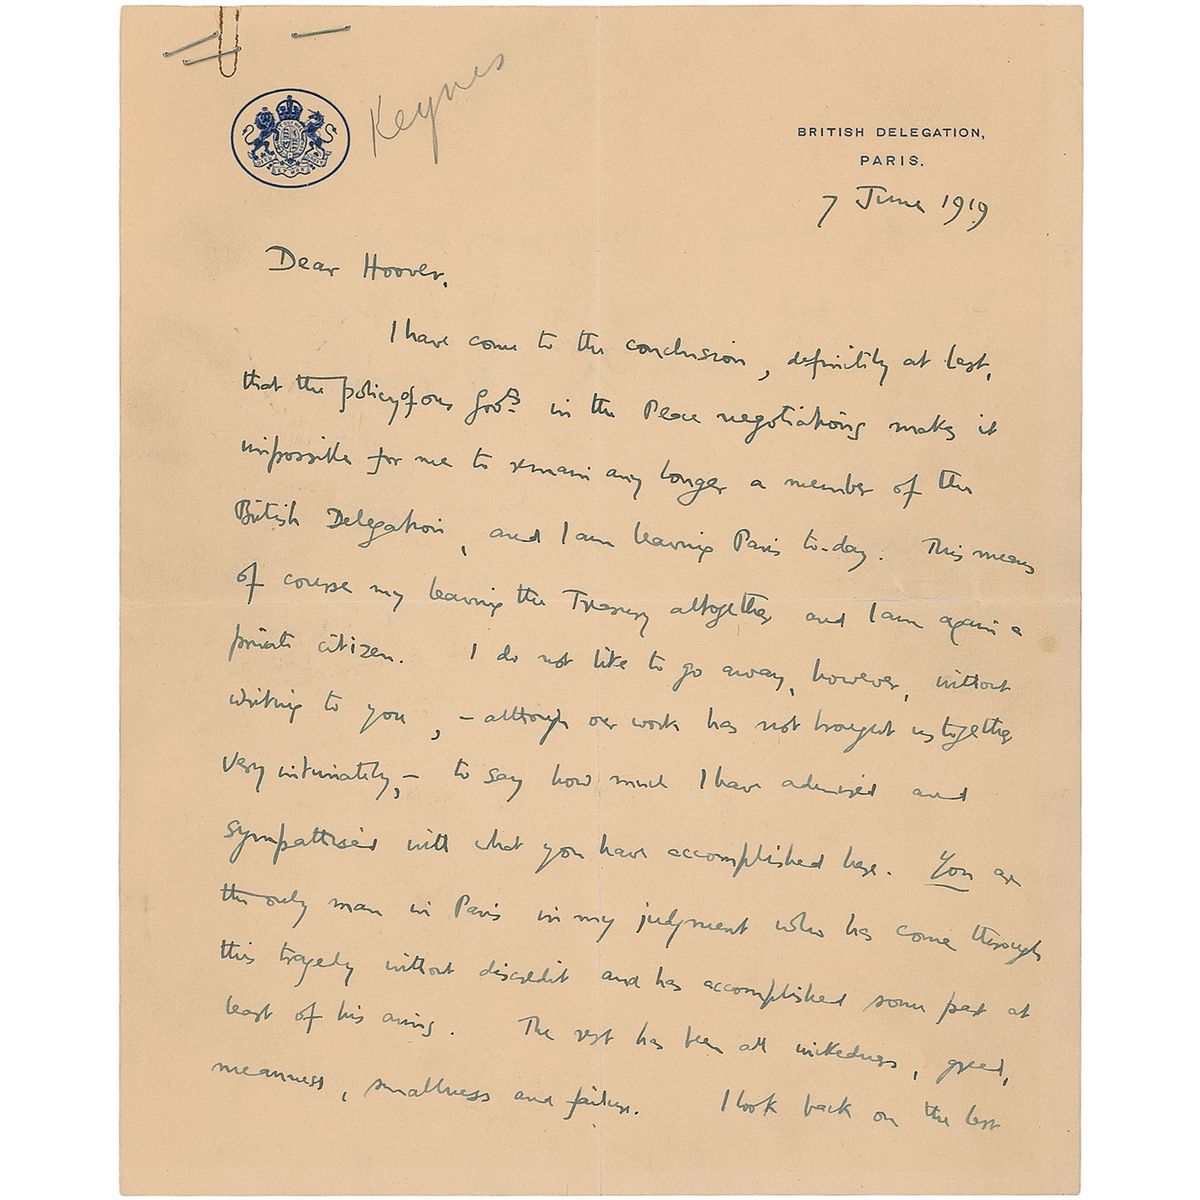 Keynes
BRITISH DELEGATION,
PARIS.
7 June 1919
Dear Hoover,
I have come to the conclusion, definitely at last,
that the policy of our Govts. in the Peace negotiations makes it
impossible for me to remain any longer a member of the
British Delegation, and I am leaving Paris to-day. This means
of course my leaving the Treasury altogether and I am again a
private citizen. I do not like to go away, however, without
writing to you, – although our work has not brought us together
very intimately, – to say how much I have admired and
sympathised with what you have accomplished here. You are
the only man in Paris in my judgment who has come through
this tragedy without discredit and has accomplished some part at
least of his aims. The rest has been all wickedness, greed,
meanness, smallness and failure. I look back on the last